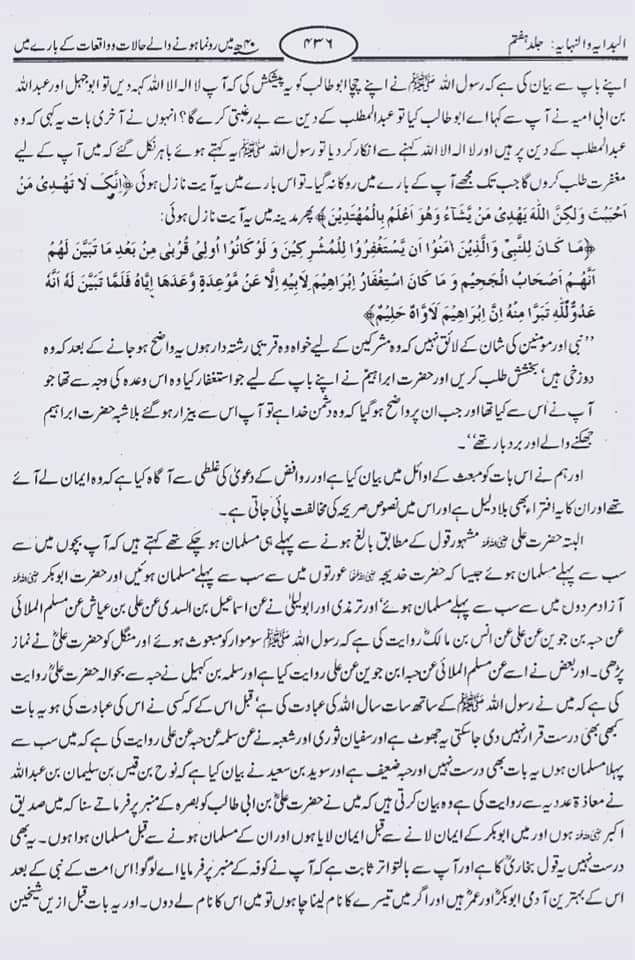 البدایہ والنہایہ: جلد ہفتم
۴۳۶
۴۰ھ میں رونما ہونے والے حالات و واقعات کے بارے میں
اپنے باپ سے بیان کی ہے کہ رسول اللہ ﷺ نے اپنے چچا ابو طالب کو یہ پیشکش کی کہ آپ لا الہ الا اللہ کہہ دیں تو ابوجہل اور عبداللہ
بن ابی امیہ نے آپ سے کہا اے ابو طالب کیا تو عبدالمطلب کے دین سے بے رغبتی کرے گا؟ انہوں نے آخری بات یہ کہی کہ وہ
عبدالمطلب کے دین پر ہیں اور لا الہ الا اللہ کہنے سے انکار کر دیا تو رسول اللہ ﷺ یہ کہتے ہوئے باہر نکل گئے کہ میں آپ کے لیے
مغفرت طلب کروں گا جب تک مجھے آپ کے بارے میں روکا نہ گیا۔ تو اس بارے میں یہ آیت نازل ہوئی ﴿اِنَّکَ لَا تَهْدِیْ مَنْ
اَحْبَبْتَ وَلٰکِنَّ اللّٰهَ یَهْدِیْ مَنْ یَّشَآءُ وَهُوَ اَعْلَمُ بِالْمُهْتَدِیْنَ﴾ پھر مدینہ میں یہ آیت نازل ہوئی:
﴿مَا کَانَ لِلنَّبِیِّ وَالَّذِیْنَ اٰمَنُوْا اَنْ یَّسْتَغْفِرُوْا لِلْمُشْرِکِیْنَ وَ لَوْ کَانُوْا اُولِیْ قُرْبٰی مِنْ بَعْدِ مَا تَبَیَّنَ لَهُمْ
اَنَّهُمْ اَصْحَابُ الْجَحِیْمِ وَ مَا کَانَ اسْتِغْفَارُ اِبْرَاهِیْمَ لِاَبِیْهِ اِلَّا عَنْ مَّوْعِدَةٍ وَّعَدَهَا اِیَّاهُ فَلَمَّا تَبَیَّنَ لَهٗ اَنَّهٗ
عَدُوٌّ لِّلّٰهِ تَبَرَّاَ مِنْهُ اِنَّ اِبْرَاهِیْمَ لَاَوَّاهٌ حَلِیْمٌ﴾
’’نبی اور مومنین کی شان کے لائق نہیں کہ وہ مشرکین کے لیے خواہ وہ قریبی رشتہ دار ہوں یہ واضح ہو جانے کے بعد کہ وہ
دوزخی ہیں‘ بخشش طلب کریں اور حضرت ابراہیم نے اپنے باپ کے لیے جو استغفار کیا وہ اس وعدہ کی وجہ سے تھا جو
آپ نے اس سے کیا تھا اور جب ان پر واضح ہو گیا کہ وہ دشمن خدا ہے تو آپ اس سے بیزار ہو گئے بلاشبہ حضرت ابراہیم
جھکنے والے اور بردبار تھے‘‘۔
اور ہم نے اس بات کو مبعث کے اوائل میں بیان کیا ہے اور روافض کے دعویٰ کی غلطی سے آگاہ کیا ہے کہ وہ ایمان لے آئے
تھے اور ان کا یہ افتراء بھی بلا دلیل ہے اور اس میں نصوص صریحہ کی مخالفت پائی جاتی ہے۔
البتہ حضرت علی رضی اللہ عنہ مشہور قول کے مطابق بالغ ہونے سے پہلے ہی مسلمان ہو چکے تھے کہتے ہیں کہ آپ بچوں میں سے
سب سے پہلے مسلمان ہوئے جیسا کہ حضرت خدیجہ رضی اللہ عنہا عورتوں میں سے سب سے پہلے مسلمان ہوئیں اور حضرت ابوبکر رضی اللہ عنہ
آزاد مردوں میں سے سب سے پہلے مسلمان ہوئے‘ اور ترمذی اور ابو یعلیٰ نے عن اسماعیل بن السدی عن علی بن عیاش عن مسلم الملائی
عن حبہ بن جوین عن علی عن انس بن مالکؓ روایت کی ہے کہ رسول اللہ ﷺ سوموار کو مبعوث ہوئے اور منگل کو حضرت علیؓ نے نماز
پڑھی۔ اور بعض نے اسے عن مسلم الملائی عن حبہ ابن جوین عن علی روایت کیا ہے اور سلمہ بن کہیل نے حبہ سے بحوالہ حضرت علیؓ روایت
کی ہے کہ میں نے رسول اللہ ﷺ کے ساتھ سات سال اللہ کی عبادت کی ہے‘ قبل اس کے کہ کسی نے اس کی عبادت کی ہو یہ بات
کبھی بھی درست قرار نہیں دی جا سکتی یہ جھوٹ ہے اور سفیان ثوری اور شعبہ نے عن سلمہ عن حبہ عن علی روایت کی ہے کہ میں سب سے
پہلا مسلمان ہوں یہ بات بھی درست نہیں اور حبہ ضعیف ہے اور سوید بن سعید نے بیان کیا ہے کہ نوح بن قیس بن سلیمان بن عبداللہ
نے معاذۃ عددیہ سے روایت کی ہے وہ بیان کرتی ہیں کہ میں نے حضرت علیؓ بن ابی طالب کو بصرہ کے منبر پر فرماتے سنا کہ میں صدیق
اکبر رضی اللہ عنہ ہوں اور میں ابوبکر کے ایمان لانے سے قبل ایمان لایا ہوں اور ان کے مسلمان ہونے سے قبل مسلمان ہوا ہوں۔ یہ بھی
درست نہیں یہ قول بخاریؒ کا ہے اور آپ سے بالتواتر ثابت ہے کہ آپ نے کوفہ کے منبر پر فرمایا اے لوگو! اس امت کے نبی کے بعد
اس کے بہترین آدمی ابوبکرؓ اور عمرؓ ہیں اور اگر میں تیسرے کا نام لینا چاہوں تو میں اس کا نام لے دوں۔ اور یہ بات قبل ازیں شیخین